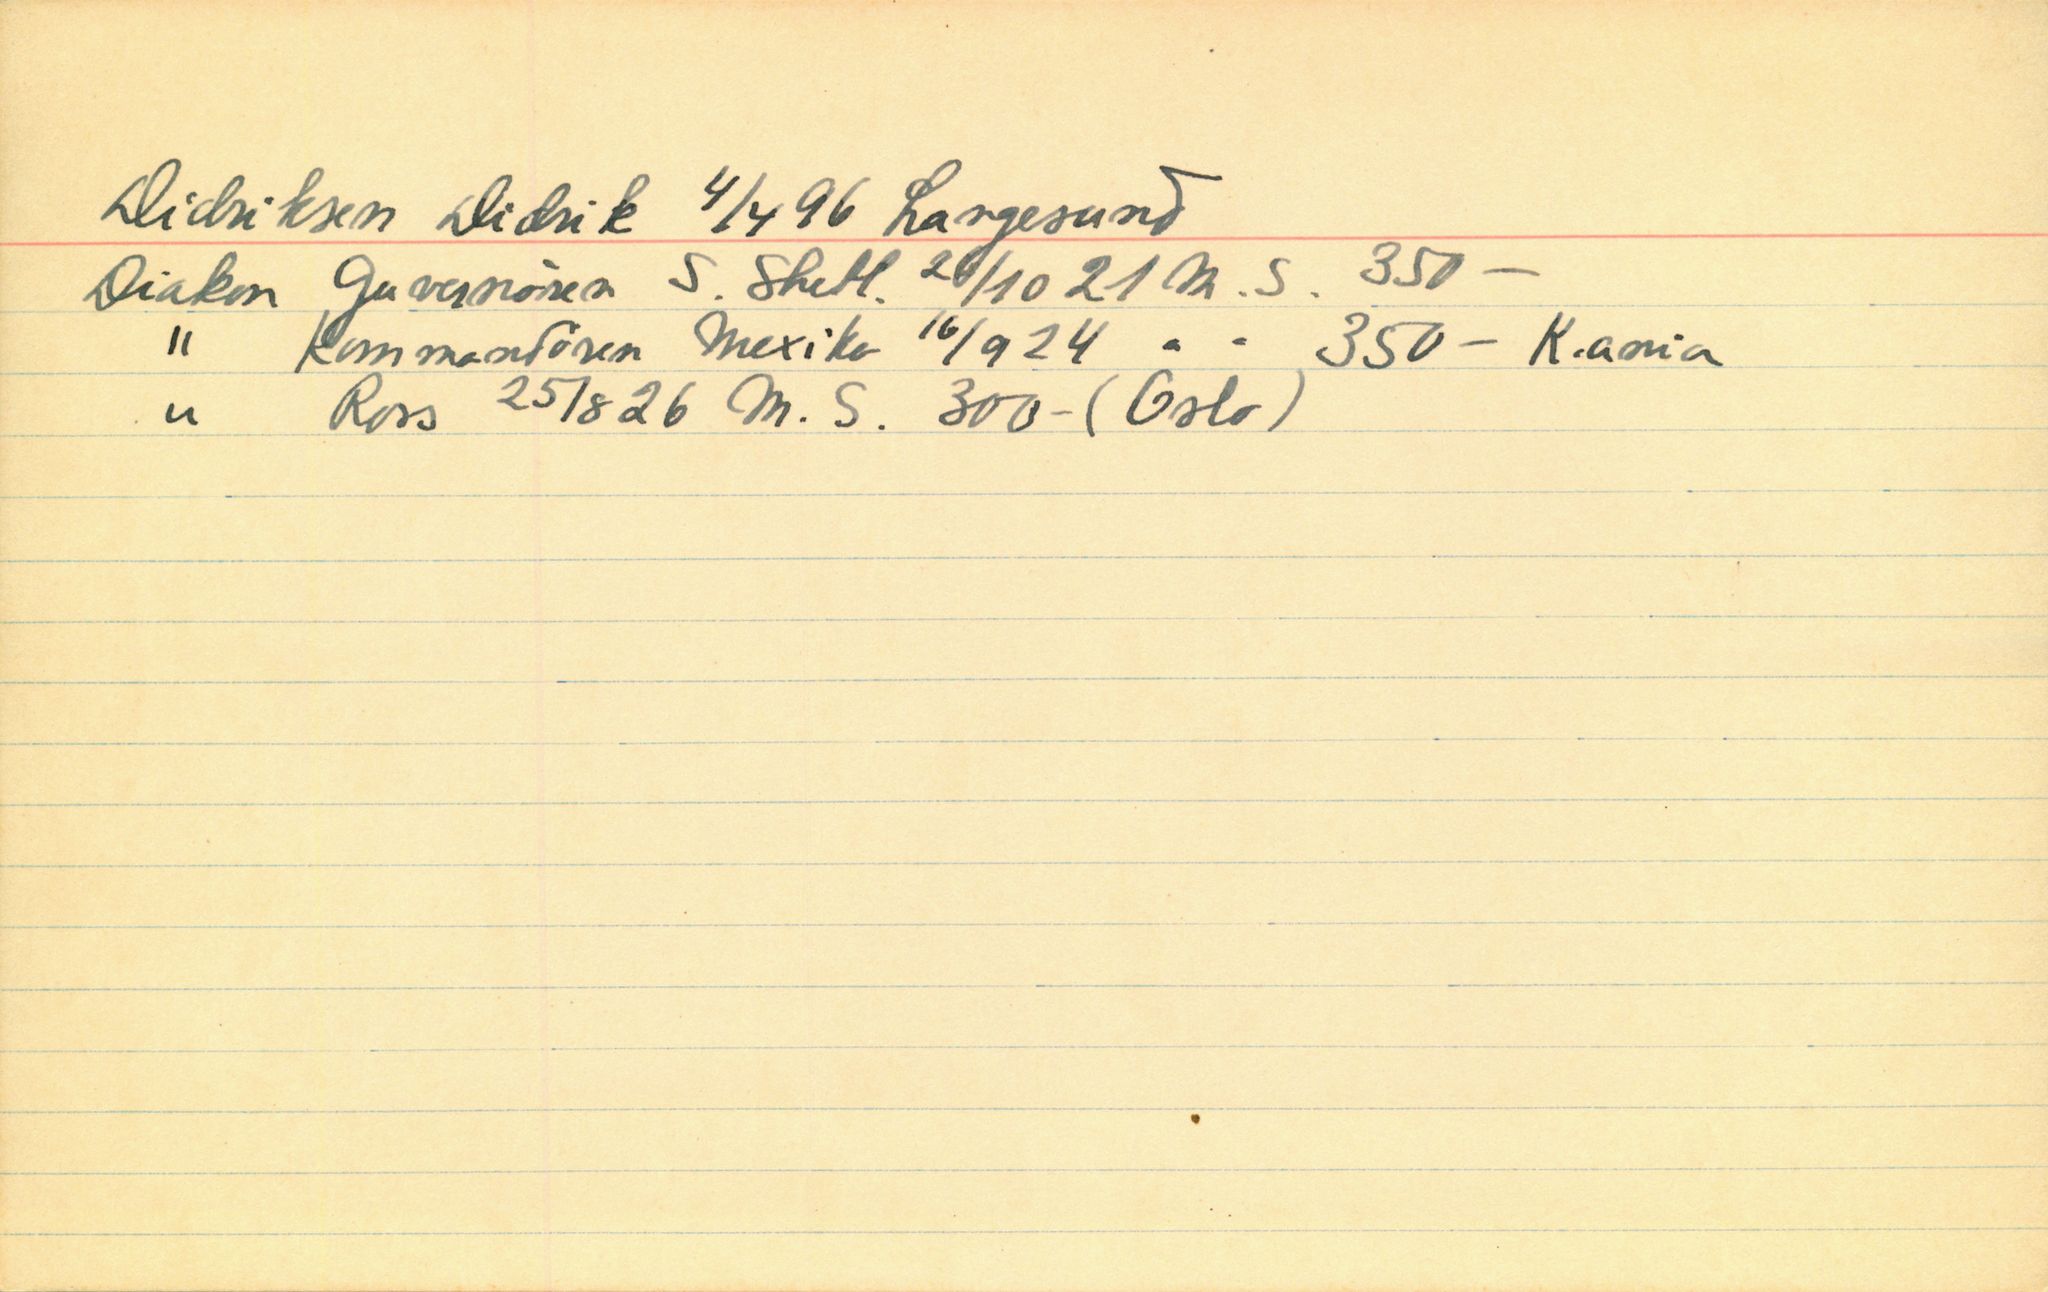 Didriksen Didrik 4/4 96 Langesund
Diakon Guvernören S. Shetl. 26/10 21 M. S. 350 –
" Kommandören Mexiko 16/9 24 " " 350 – K.ania
" Ross 25/8 26 M. S. 300 – (Oslo)